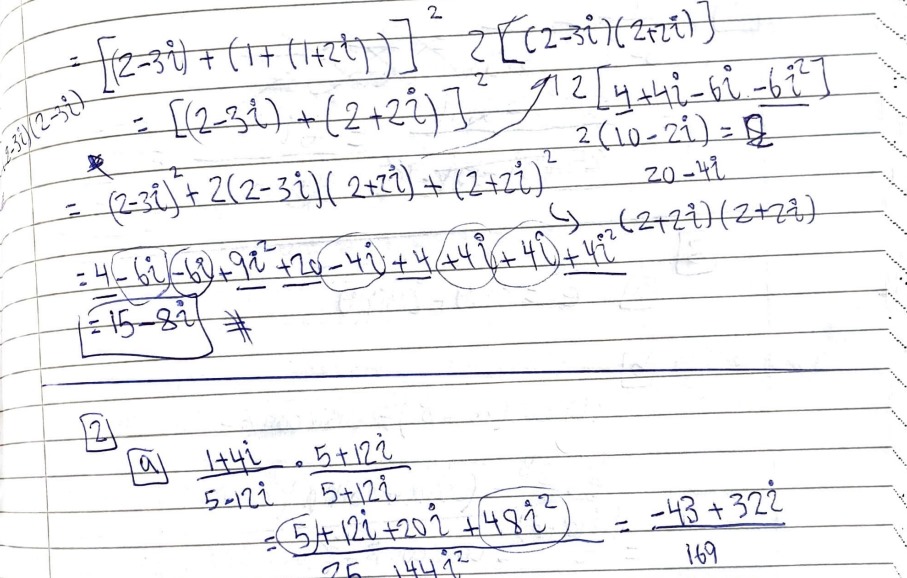 = [(2-3i) + (1 + (1+2i))]² 2[(2-3i)(2+2i)]
= [(2-3i) + (2+2i)]² 2[4+4i-6i-6i²]
-3i)(2-3i)
2(10-2i) =
20-4i
= (2-3i)² + 2(2-3i)(2+2i) + (2+2i)²
(2+2i)(2+2i)
= 4-6i-6i+9i²+20-4i+4+4i+4i+4i²
= 15-8i #
2
a 1+4i/5-12i · 5+12i/5+12i
= 5+12i+20i+48i²/25 144i² = -43+32i/169